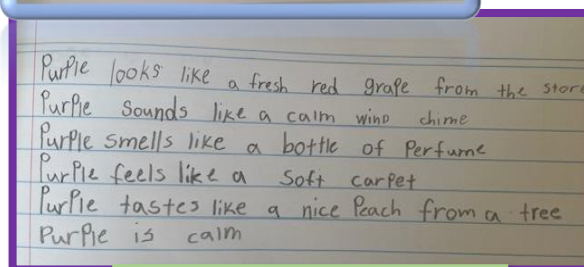 Purple looks like a fresh red grape from the store
Purple sounds like a calm wind chime
Purple smells like a bottle of Perfume
Purple feels like a soft carpet
Purple tastes like a nice Peach from a tree
Purple is calm